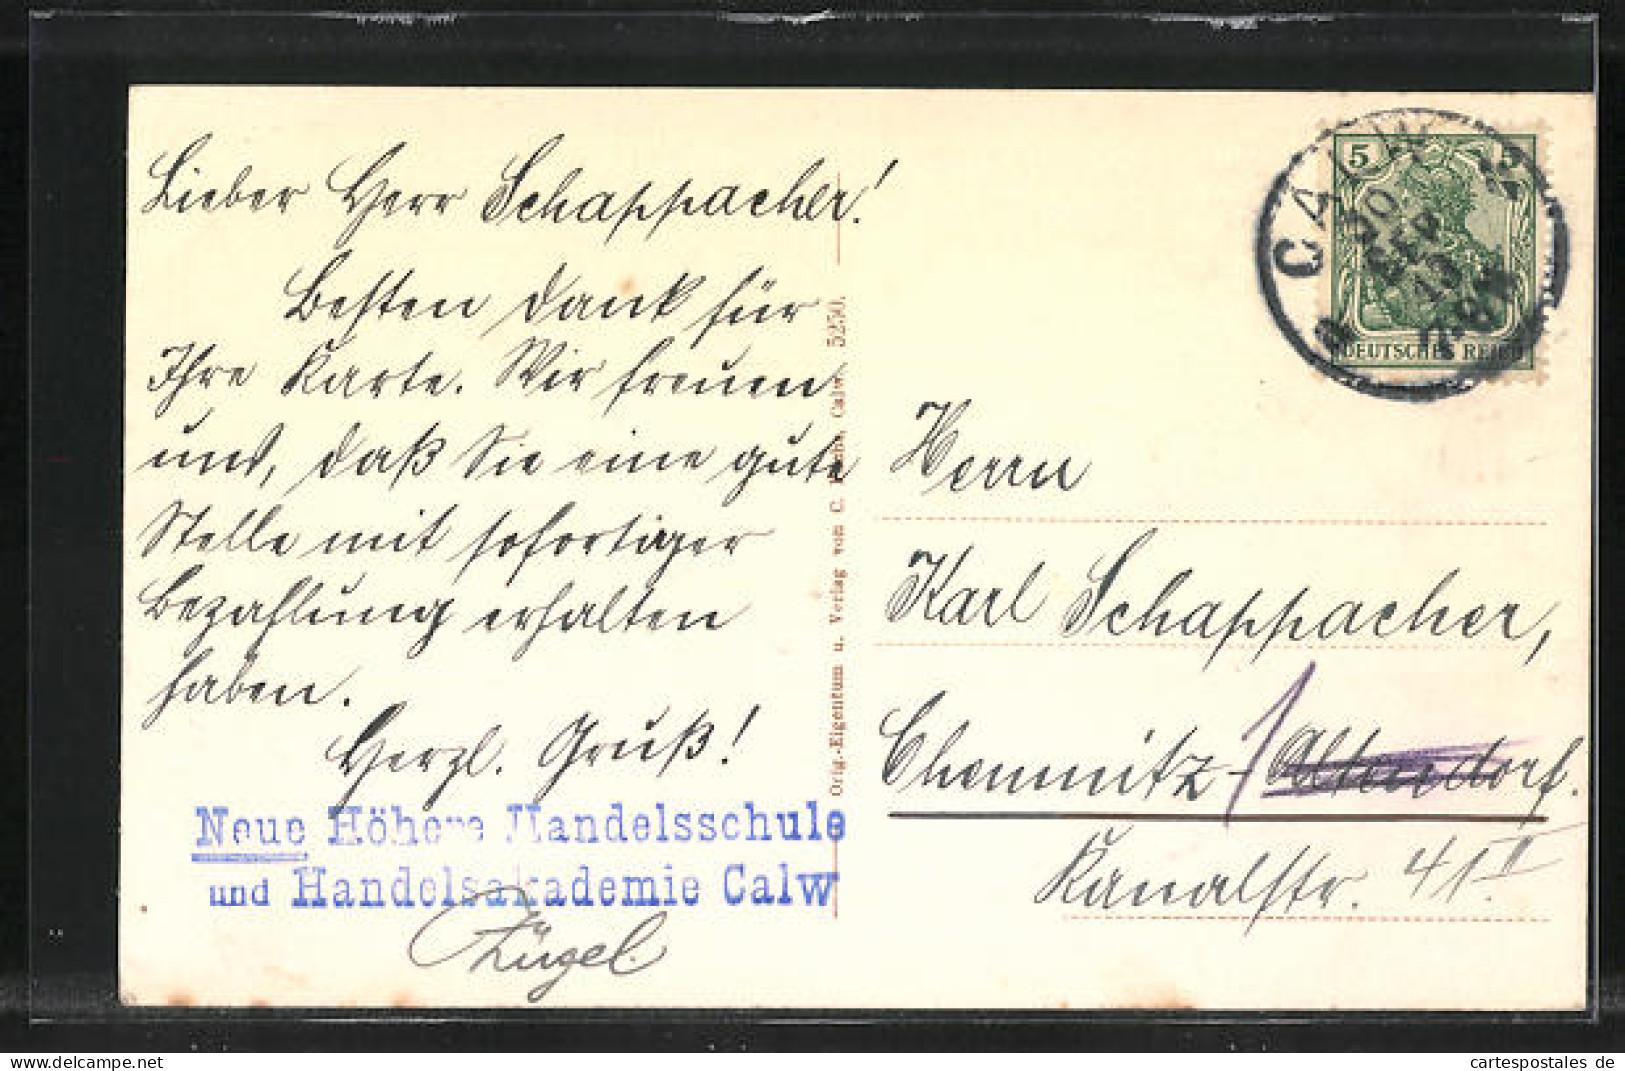 Lieber Herr Schappacher!
Besten Dank für
Ihre Karte. Wir freuen
uns, daß Sie eine gute
Stelle mit sofortiger
Bezahlung erhalten
haben.
Herzl. Gruß!
Neue Höhere Handelsschule
und Handelsakademie Calw
Zügel.
Orig.-Eigentum u. Verlag von C. Calw. 5250.
CALW
30
SEP
5 5
DEUTSCHES REICH
Herrn
Karl Schappacher,
Chemnitz - 1 Altendorf.
Kanalstr. 41 II
cartespostales de